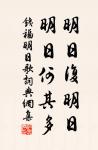 明日復明日
明日何其多
錢福明日歌詞典網集